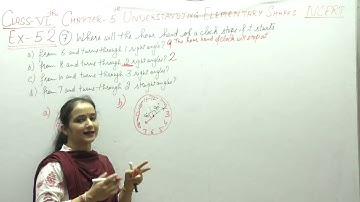 CLASS-VIth CHAPTER-5th UNDERSTANDING ELEMENTARY SHAPES NCERT
Ex-5.2 (7) Where will the hour hand of a clock stop if it starts
a) from 6 and turns through 1 right angle? 9 The hour hand of clock will stop at
b) from 8 and turns through 2 right angles? 2
c) from 10 and turns through 3 right angles?
d) from 7 and turns through 2 straight angles?
a) b)